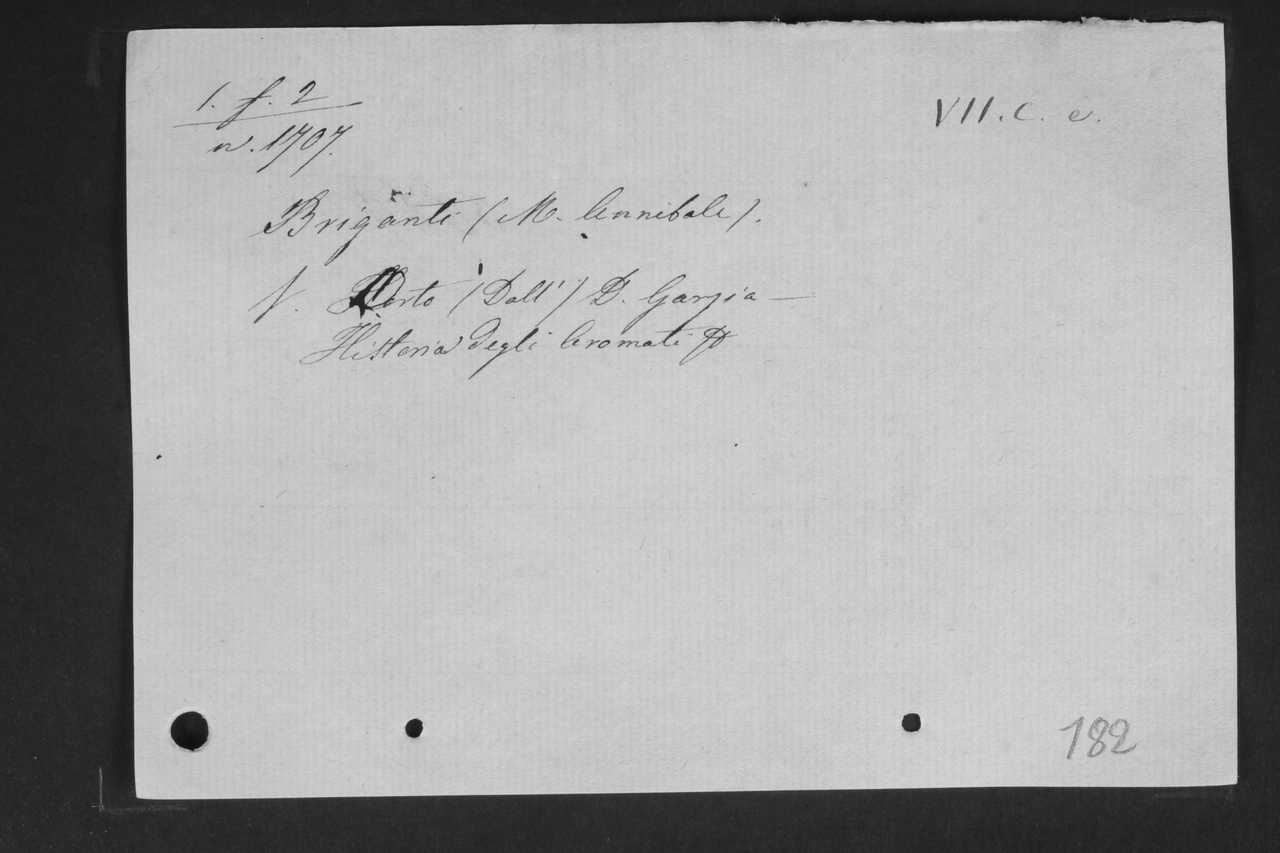 1. f. 2
VII. C. e.
n. 1707.
Briganti (M. Annibale).
V. Orto (Dall') D. Garzia —
Historia degli Aromati
182